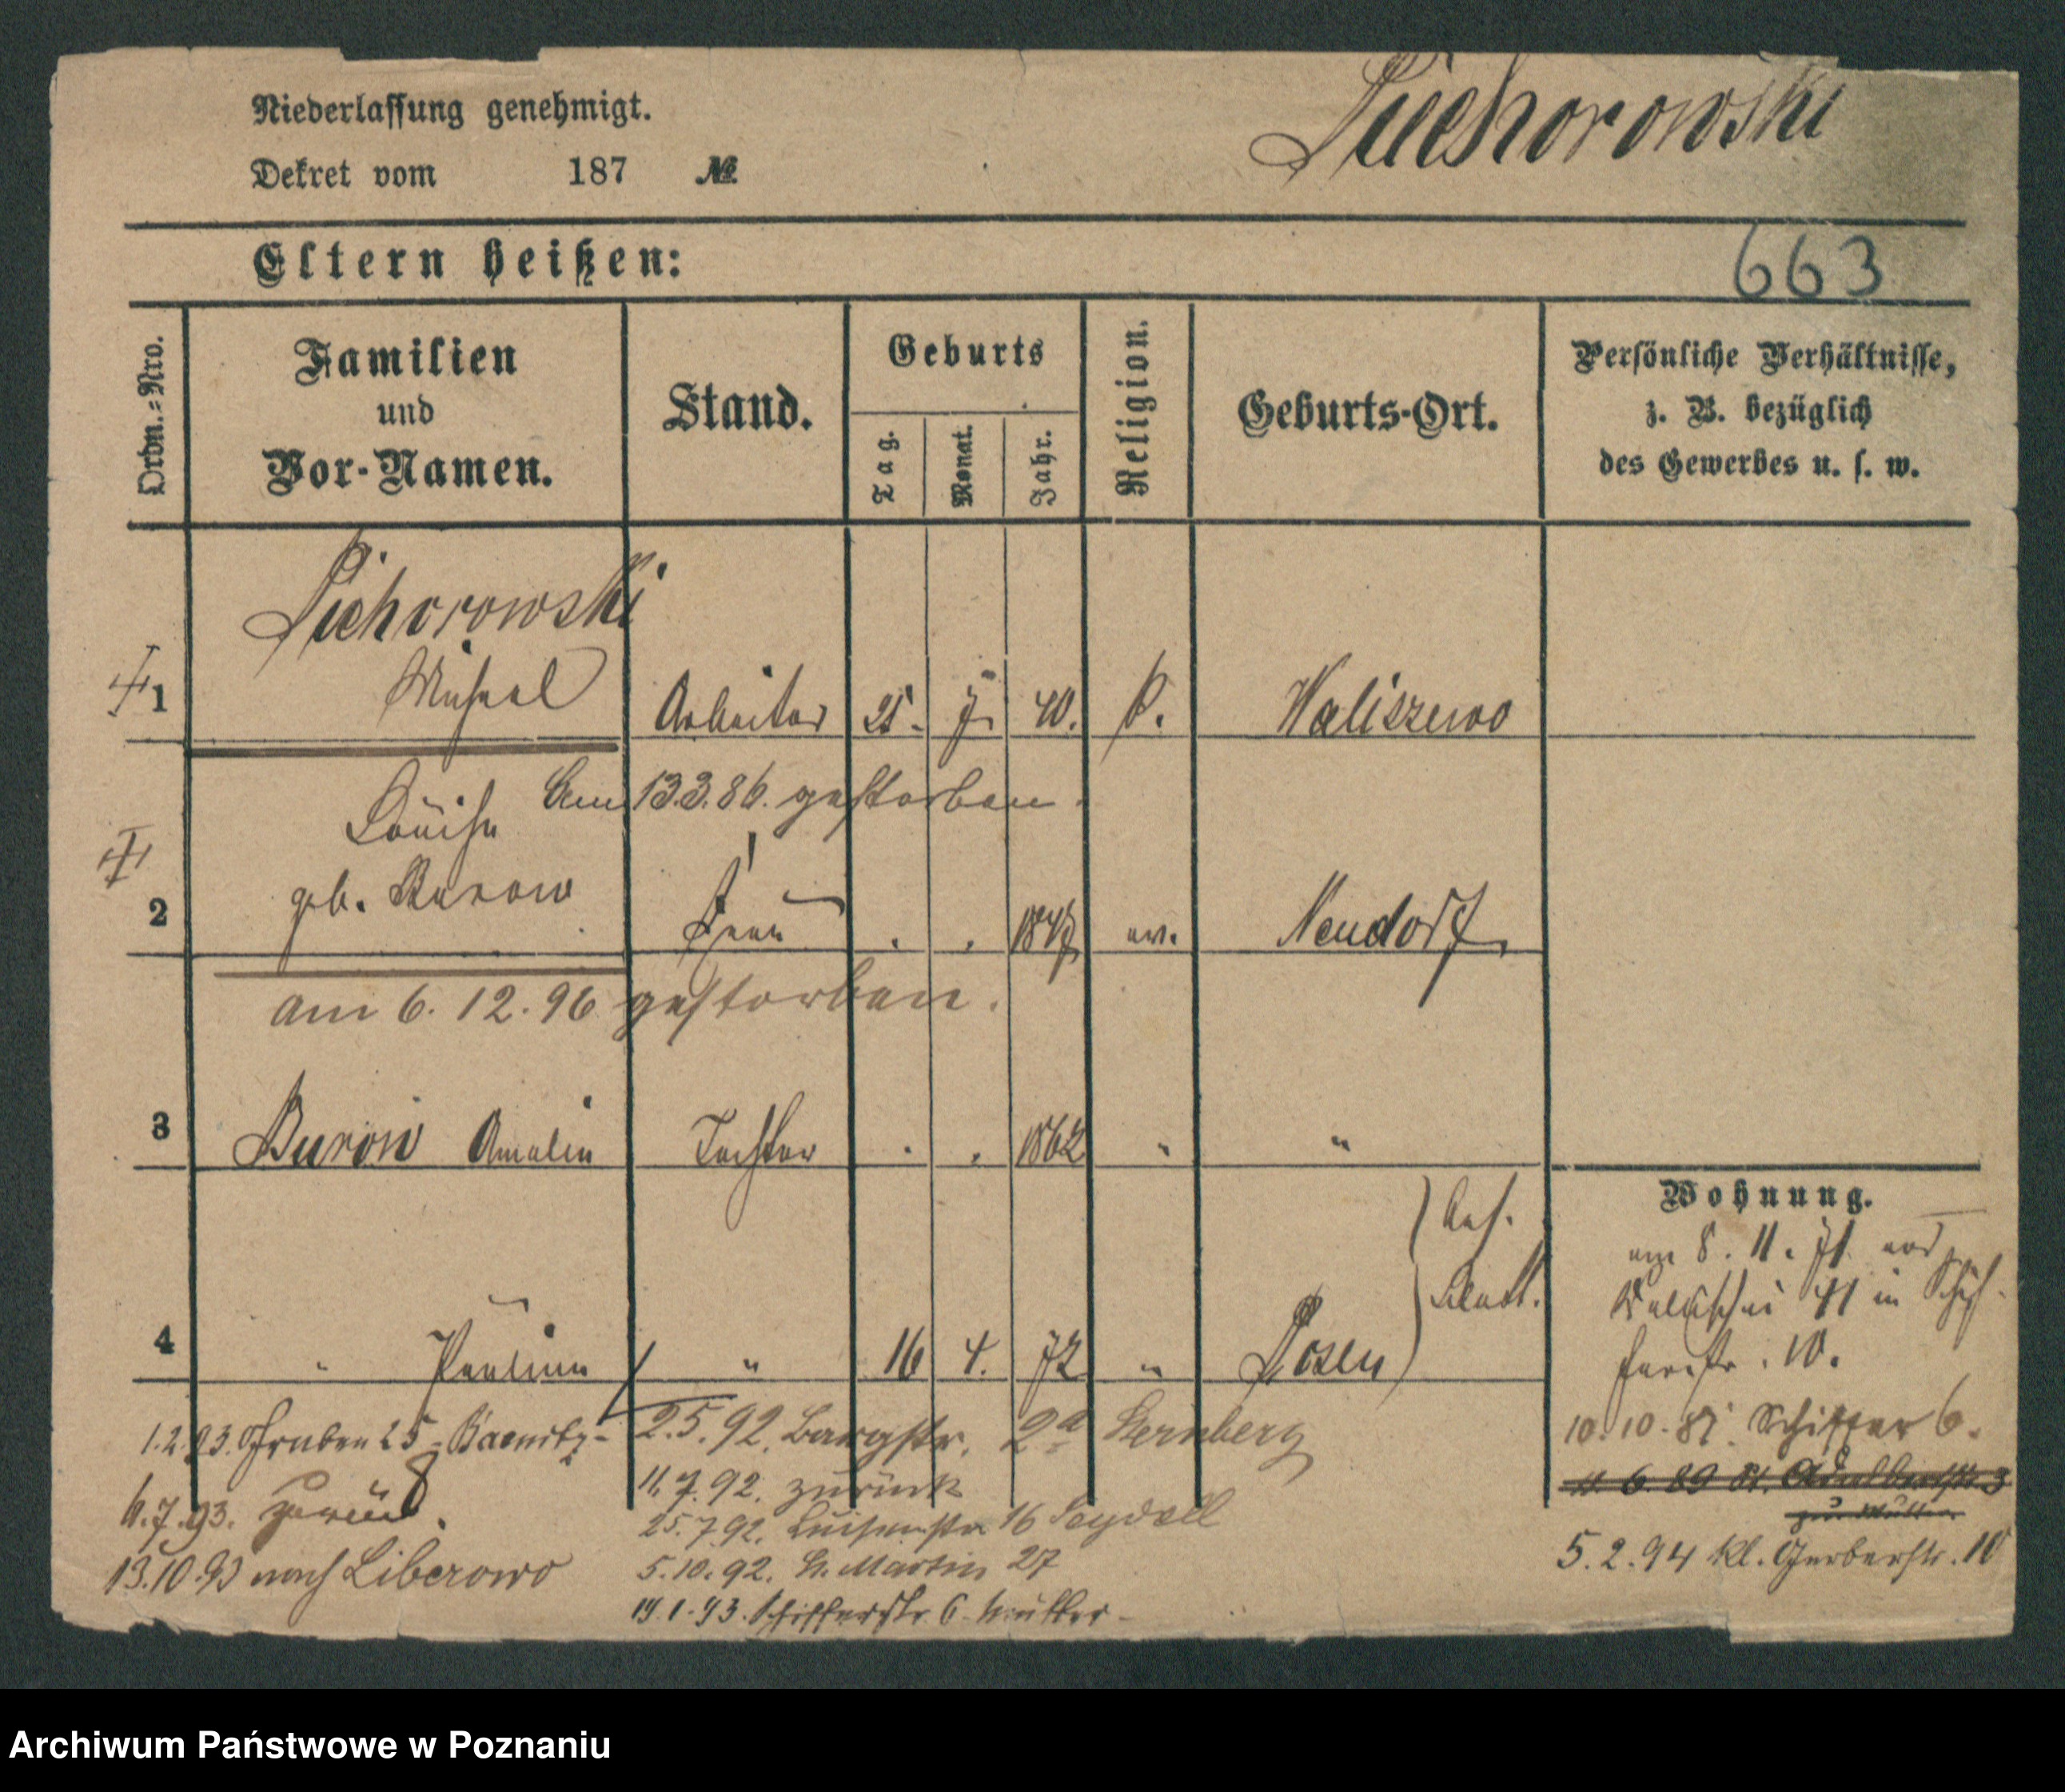 Niederlassung genehmigt.
Dekret vom 187 №
Eltern heißen:
663
Ordn.=Nro.
Familien
und
Vor-Namen.
Stand.
Geburts
Tag.
Monat.
Jahr.
Religion.
Geburts-Ort.
Persönliche Verhältnisse,
z. B. bezüglich
des Gewerbes u. s. w.
1 Michael Arbeiter 25. 7. 40. k. Waliszewo
Am 13.3.86. gestorben.
Louise
2 geb. Burow Frau 1847 ev. Neudorf.
am 6. 12. 96 gestorben.
3 Burow Amalie Tochter . . 1862 " "
4 " Pauline " 16 4. 72 " Posen
Wohnung.
am 8. 11. 71 von
Wallischei 41 in Schif-
ferstr. 10.
10.10.81. Schiffer 6.
11. 6. 89 St. Adalbertstr. 3
zur Mutter
5.2.94 Kl. Gerberstr. 10
2.5.92. Bergstr. 2a Sternberg
11.7.92. zurück
25.7.92. Luisenstr 16 Seydell
5.10.92. St. Martin 27
19.1.93. Schifferstr. 6 Mutter-
1.2.93. Graben 25
6.7.93. zurück.
13.10.93 nach Liberowo
Archiwum Państwowe w Poznaniu